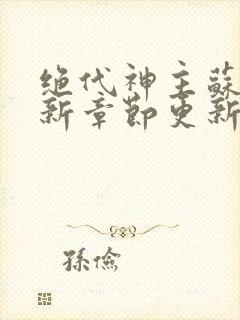 绝代神主蘇
新章節更新
孫儉